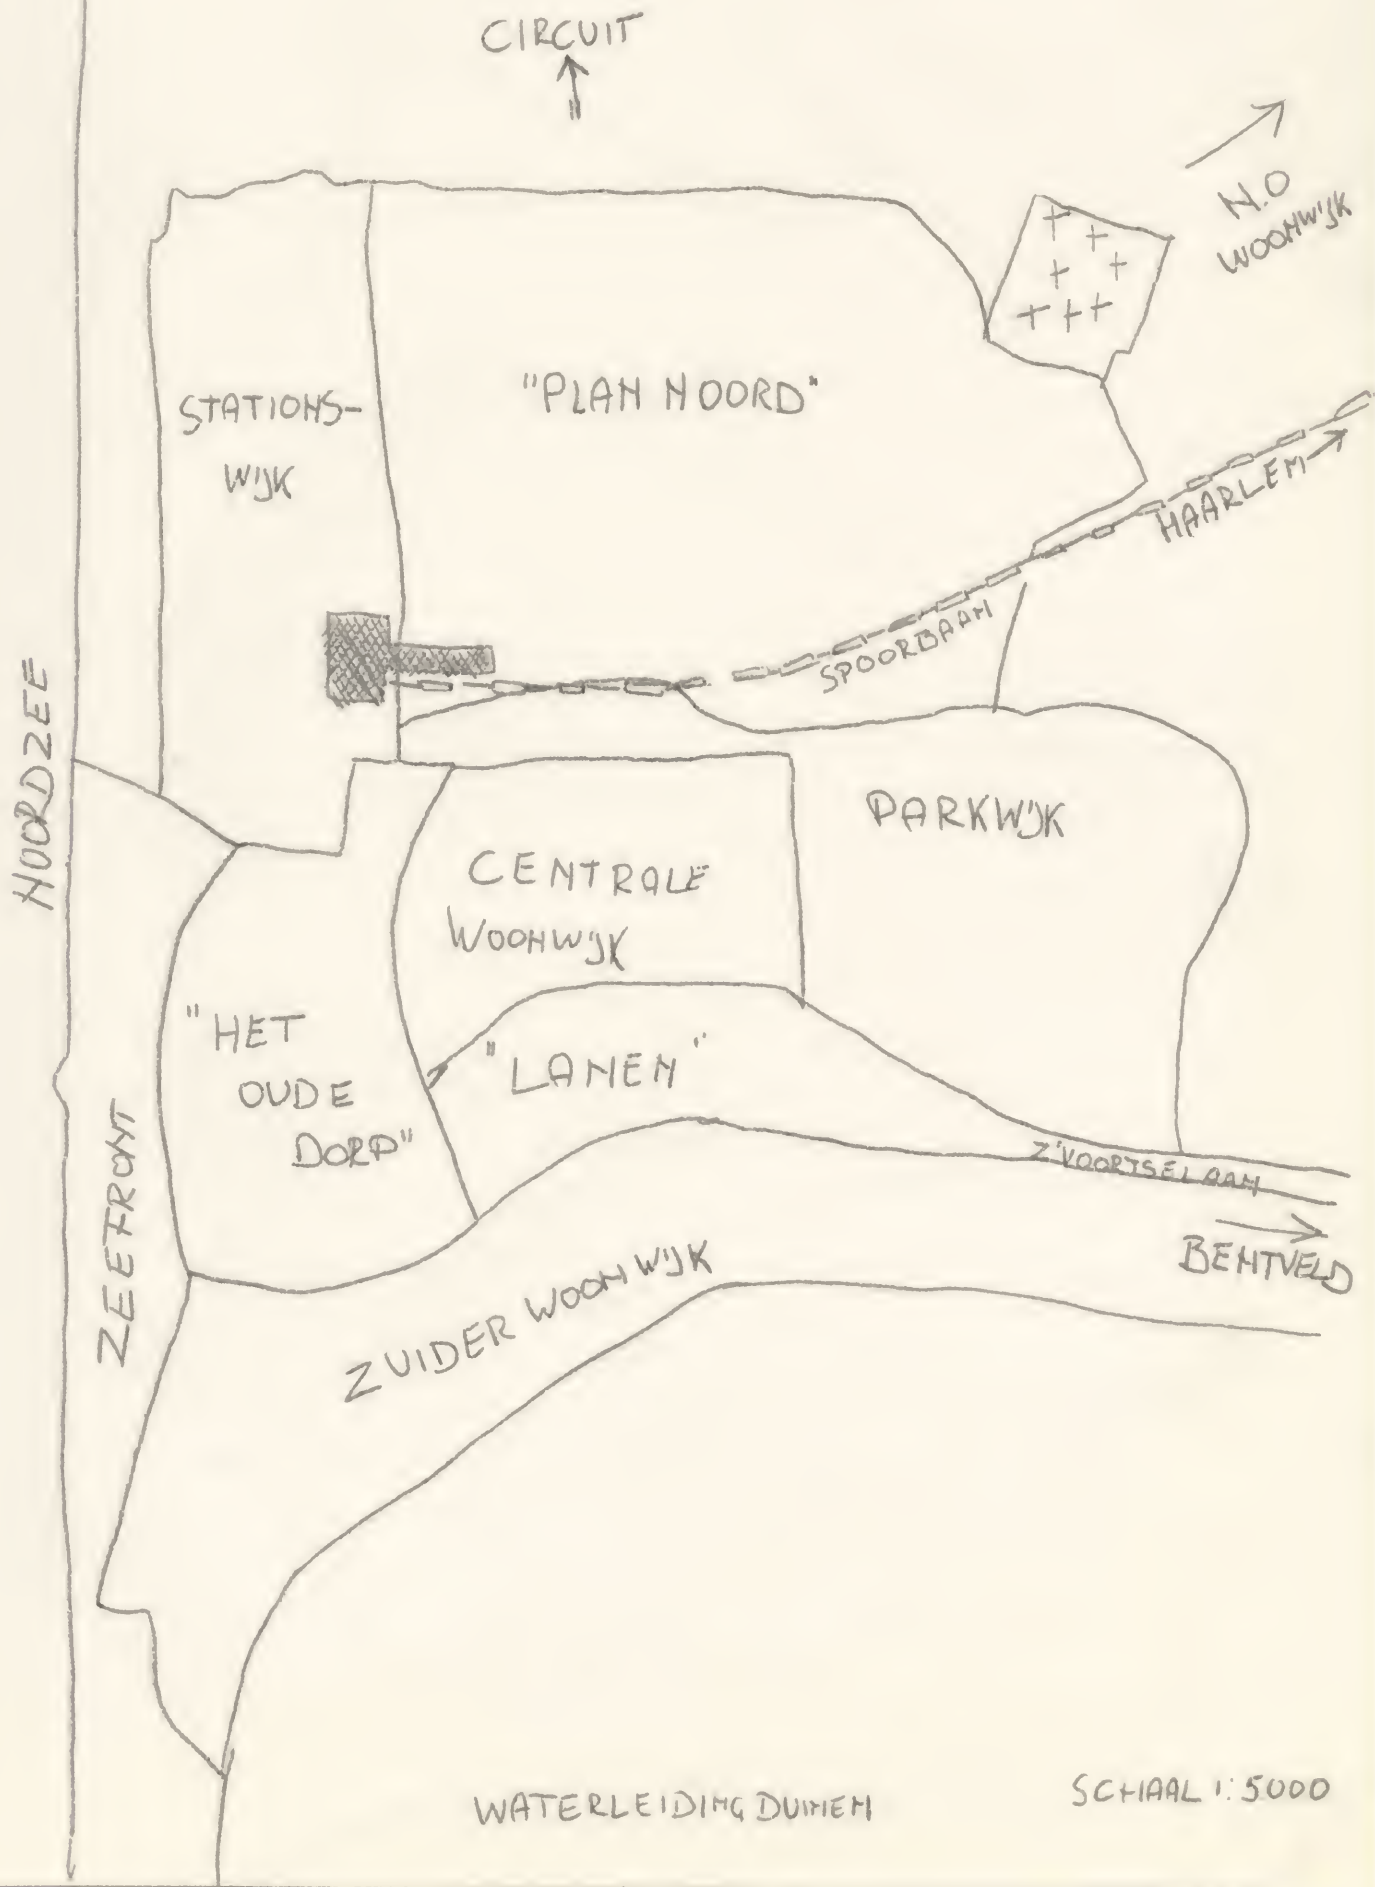 CIRCUIT
N.O
WOONWIJK
"PLAN NOORD"
STATIONS-
WIJK
HAARLEM
SPOORBAAN
NOORDZEE
PARKWIJK
CENTRALE
WOONWIJK
"HET
OUDE
DORP"
"LANEN"
ZEEFRONT
Z'VOORTSELAAN
BENTVELD
ZUIDER WOONWIJK
WATERLEIDING DUINEN
SCHAAL 1:5000